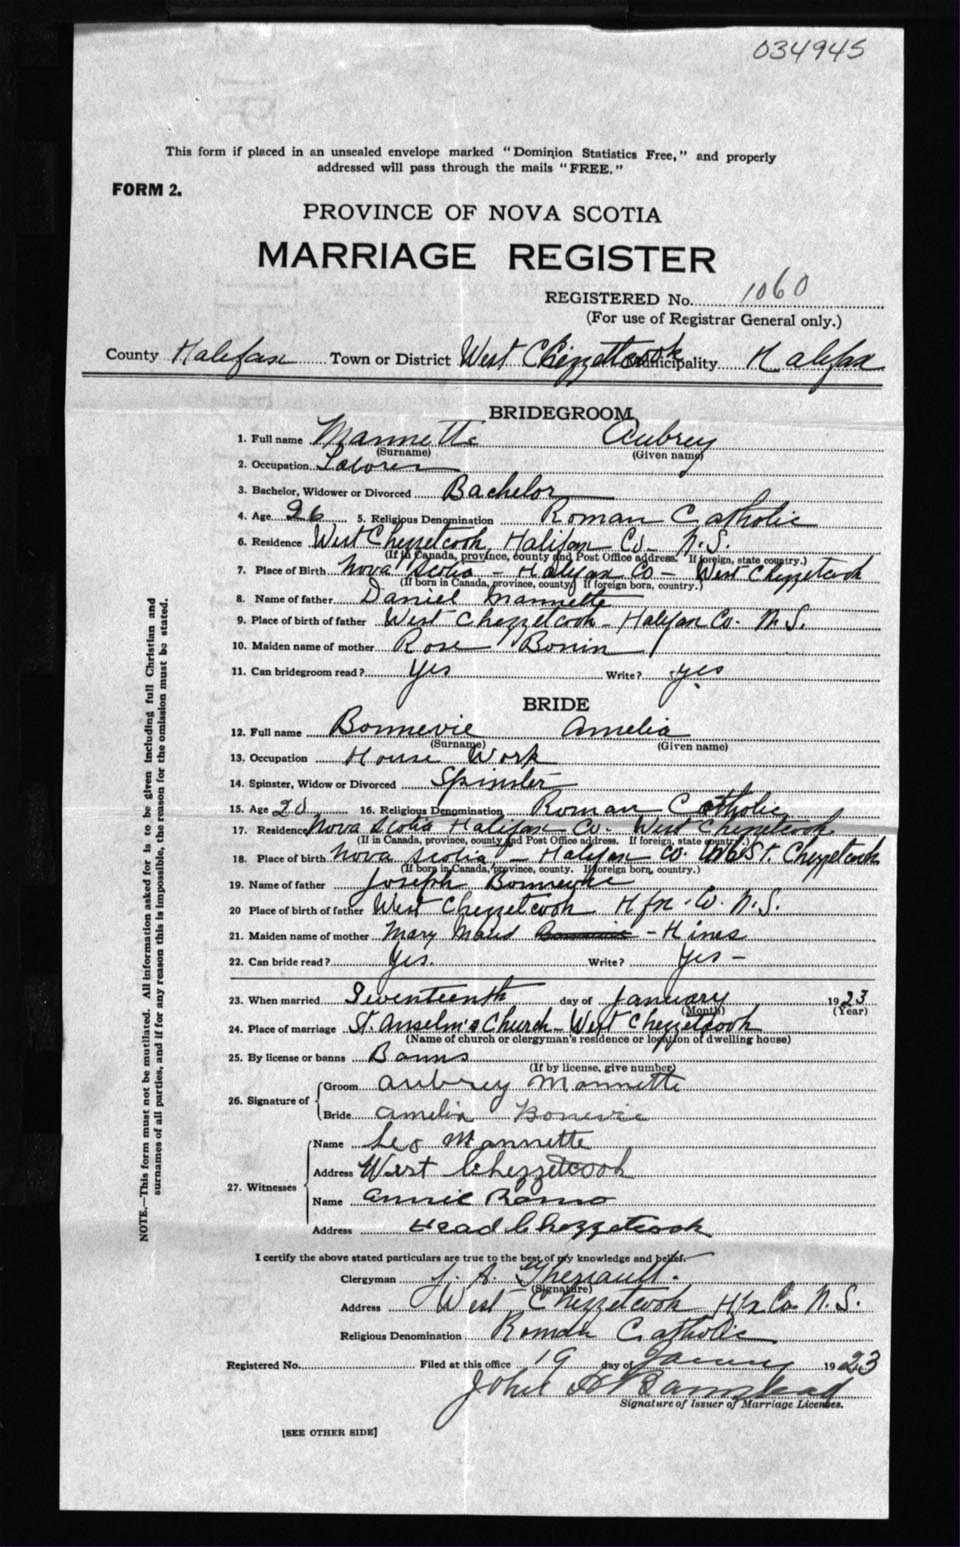 034945
This form if placed in an unsealed envelope marked "Dominion Statistics Free," and properly
addressed will pass through the mails "FREE."
FORM 2.
PROVINCE OF NOVA SCOTIA
MARRIAGE REGISTER
REGISTERED No. 1060
(For use of Registrar General only.)
County Halifax Town or District West Chezzetcook Municipality Halifax
BRIDEGROOM
1. Full name Mannette Aubrey
(Surname) (Given name)
2. Occupation Laborer
3. Bachelor, Widower or Divorced Bachelor
4. Age 26 5. Religious Denomination Roman Catholic
6. Residence West Chezzetcook, Halifax Co. N.S.
(If in Canada, province, county and Post Office address. If foreign, state country.)
7. Place of Birth Nova Scotia - Halifax Co - West Chezzetcook
(If born in Canada, province, county. If foreign born, country.)
8. Name of father Daniel Mannette
9. Place of birth of father West Chezzetcook - Halifax Co. N.S.
10. Maiden name of mother Rose Bonin
11. Can bridegroom read? Yes Write? yes
BRIDE
12. Full name Bonnevie Amelia
(Surname) (Given name)
13. Occupation House Work
14. Spinster, Widow or Divorced Spinster
15. Age 20 16. Religious Denomination Roman Catholic
17. Residence Nova Scotia Halifax Co. West Chezzetcook
(If in Canada, province, county and Post Office address. If foreign, state country.)
18. Place of birth Nova Scotia - Halifax Co. West Chezzetcook
(If born in Canada, province, county. If foreign born, country.)
19. Name of father Joseph Bonnevie
20 Place of birth of father West Chezzetcook Hfx. Co. N.S.
21. Maiden name of mother Mary Maud - Hines
22. Can bride read? Yes. Write? Yes -
23. When married Seventeenth day of January 1923
(Month) (Year)
24. Place of marriage St. Anselm's Church - West Chezzetcook
(Name of church or clergyman's residence or location of dwelling house)
25. By license or banns Banns
(If by license, give number)
26. Signature of Groom Aubrey Mannette
Bride Amelia Bonevie
27. Witnesses Name Leo Mannette
Address West Chezzetcook
Name Annie Romo
Address Head Chezzetcook
I certify the above stated particulars are true to the best of my knowledge and belief.
Clergyman J. A. Theriault.
(Signature)
Address West Chezzetcook Hfx Co. N.S.
Religious Denomination Roman Catholic
Registered No. Filed at this office 19 day of January 1923
John
Signature of Issuer of Marriage Licenses.
[SEE OTHER SIDE]
NOTE.—This form must not be mutilated. All information asked for is to be given including full Christian and
surnames of all parties, and if for any reason this is impossible, the reason for the omission must be stated.